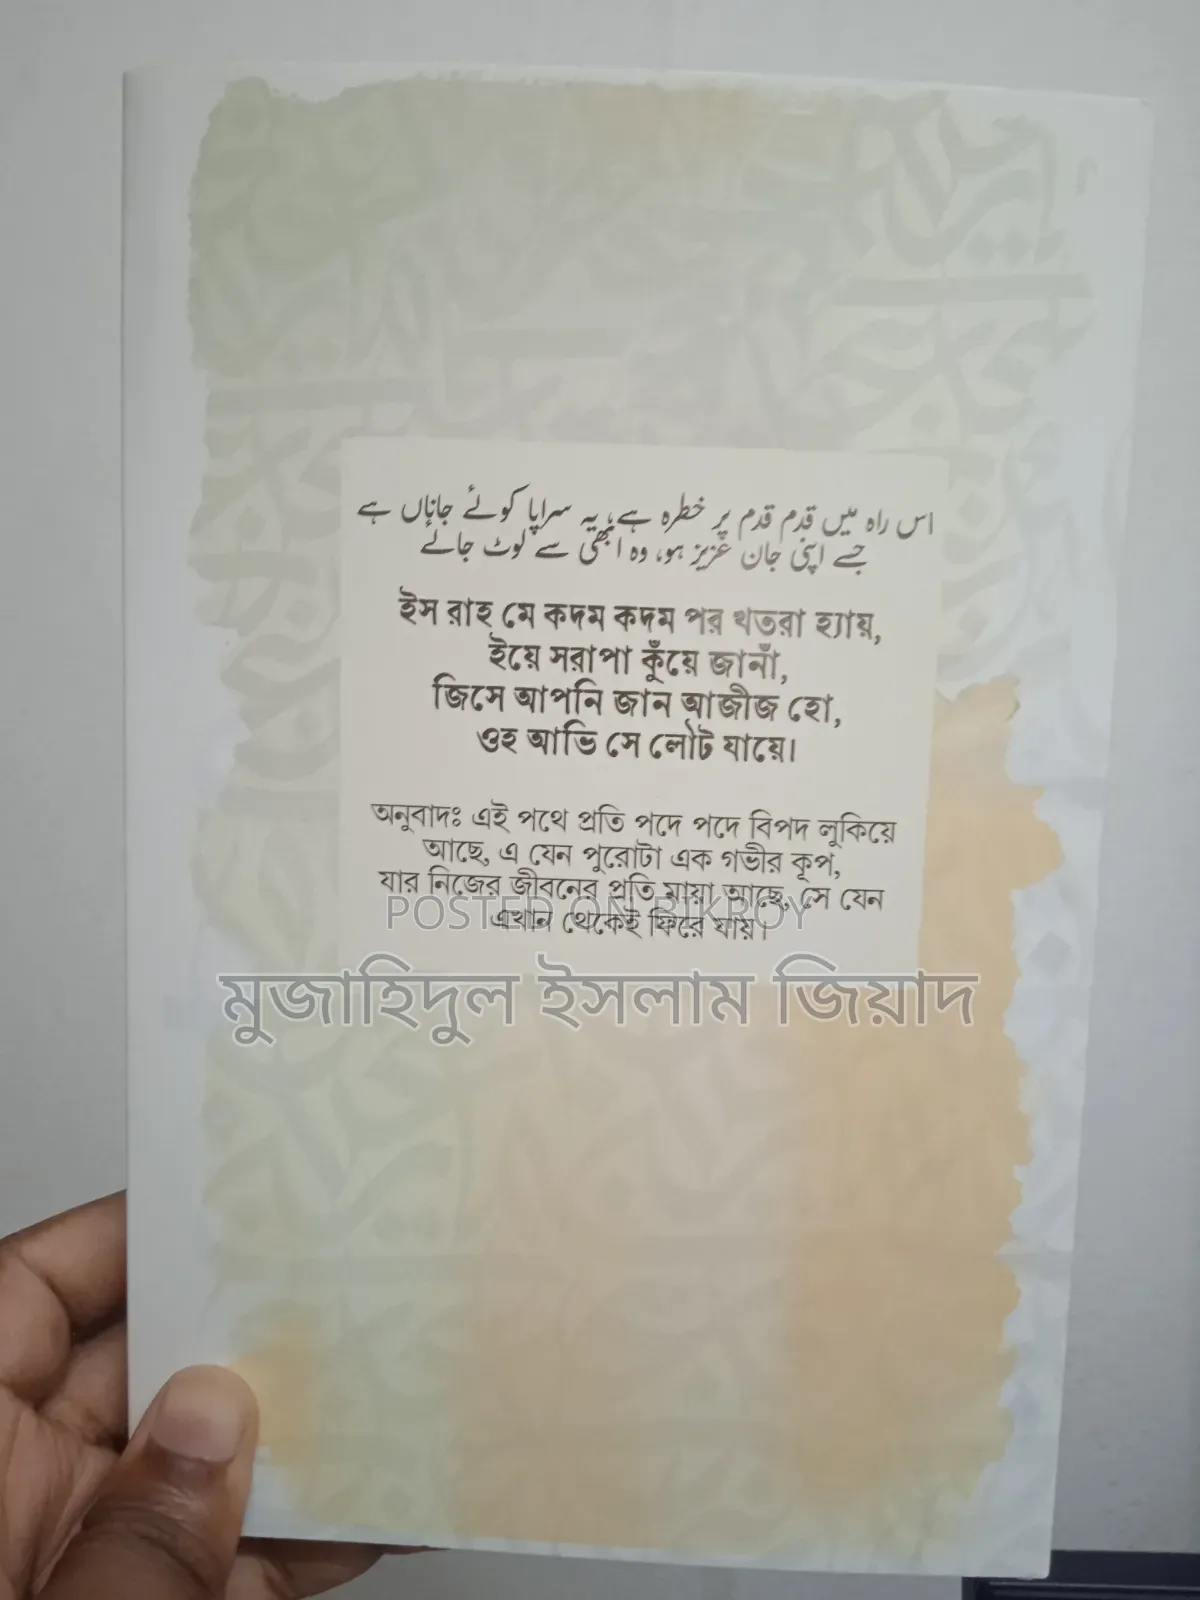 اس راہ میں قدم قدم پر خطرہ ہے، یہ سراپا کوئے جاناں ہے
جسے اپنی جان عزیز ہو، وہ ابھی سے لوٹ جائے
ইস রাহ মে কদম কদম পর খতরা হ্যায়,
ইয়ে সরাপা কুঁয়ে জানাঁ,
জিসে আপনি জান আজীজ হো,
ওহ আভি সে লৌট যায়ে।
অনুবাদঃ এই পথে প্রতি পদে পদে বিপদ লুকিয়ে
আছে, এ যেন পুরোটা এক গভীর কূপ,
যার নিজের জীবনের প্রতি মায়া আছে, সে যেন
এখান থেকেই ফিরে যায়।
POSTED ON BIKROY
মুজাহিদুল ইসলাম জিয়াদ